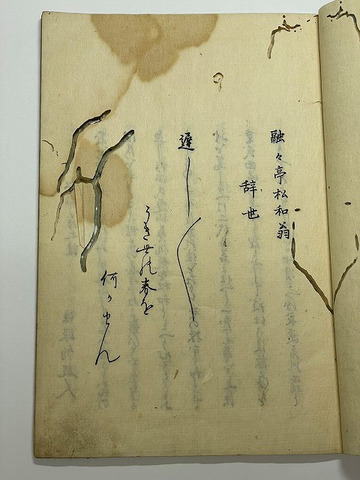 融々亭松和翁
辞世
遅し〱
うき世の春を
何かせん